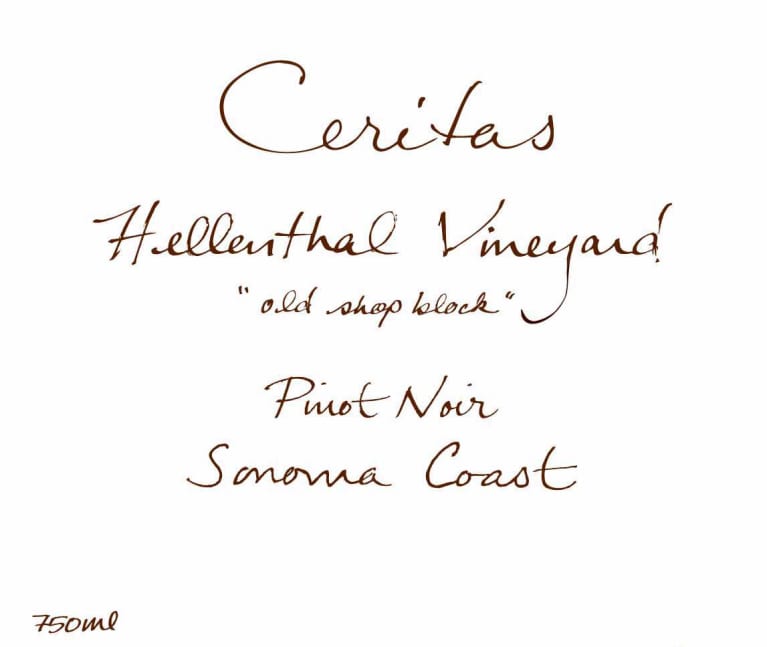 Ceritas
Hellenthal Vineyard
"old shop block"
Pinot Noir
Sonoma Coast
750ml